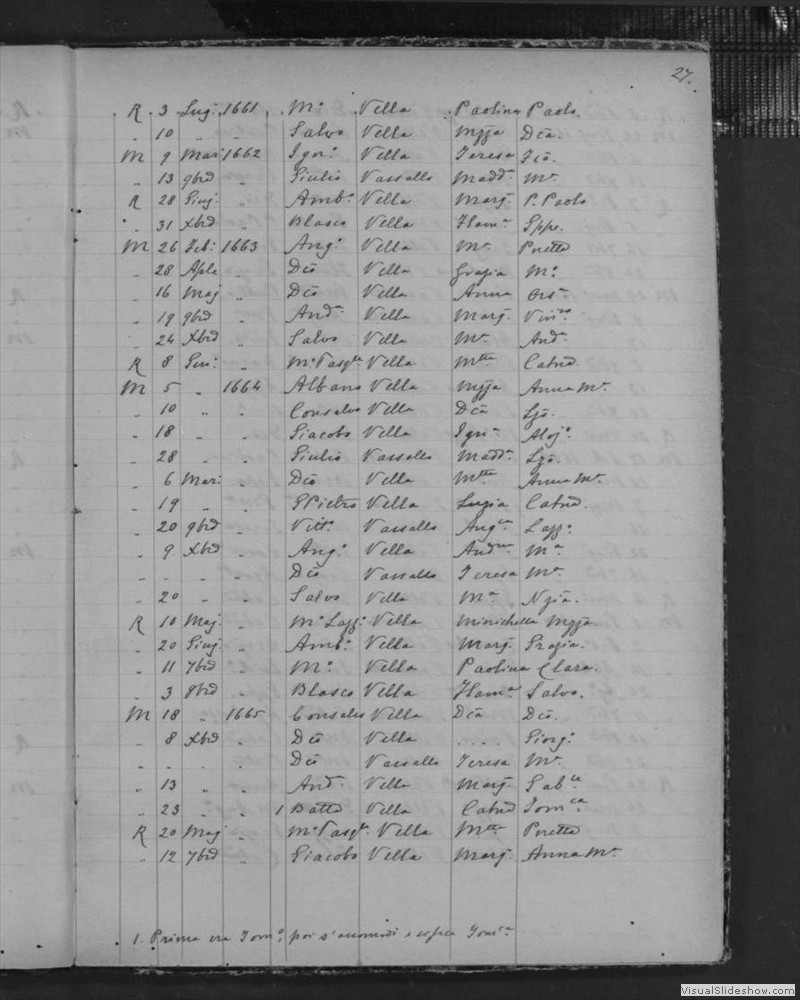 27.
R 3 Lug: 1661 Mo Vella Paolina Paolo
" 10 " " Salvo Vella Mgza Dca
M 9 Mar: 1662 Igno Vella Teresa
" 13 9brd " Giulio Vassallo Madda Ma
R 28 Giug: " Ambo Vella Marg: P. Paolo
" 31 Xbrd " Blasco Vella Flama Gppe.
M 26 Feb: 1663 Ango Vella Ma Pretto
" 28 Aple " Dco Vella Grazia Mo
" 16 Mag " Dco Vella Anna
" 19 9brd " Anda Vella Marg:
" 24 Xbrd " Salvo Vella Ma Anda
R 8 " MoPasqle Vella Mtta Catnd.
M 5 " 1664 Albano Vella Mgza Anna Ma
" 10 " " Consalvo Vella Dca Lzo.
" 18 " " Giacobo Vella Igna Aloj:
" 28 " " Giulio Vassallo Madda Lzo.
" 6 Mar: " Dco Vella Mtta Anna Ma
" 19 " " GPietro Vella Luzia Catnd.
" 20 9brd " Vito Vassallo Angca Lazzo
" 9 Xbrd " Ango Vella Andna Ma
" " " " Dco Vassallo Teresa Ma
" 20 " " Salvo Vella Ma Nzia.
R 10 Mag " Mo Lazzo Vella Minichella Mgza.
" 20 Giug " Ambo Vella Marg: Grazia.
" 11 7brd " Mo Vella Paolina Clara.
" 3 8brd " Blasco Vella Flama Salvo.
M 18 " 1665 Consalvo Vella Dca Dco.
" 8 Xbrd " Dco Vella .... Giorgo
" " " " Dco Vassallo Teresa Ma
" 13 " " And: Vella Marg: Sabca
" 23 " " 1 Batta Vella Catnd Domca
R 20 Mag " MoPasqle Vella Mtta Pretto
" 12 7brd " Giacobo Vella Marg: Anna Ma
1. Prima era Domo, poi Domca
VisualSlideshow.com